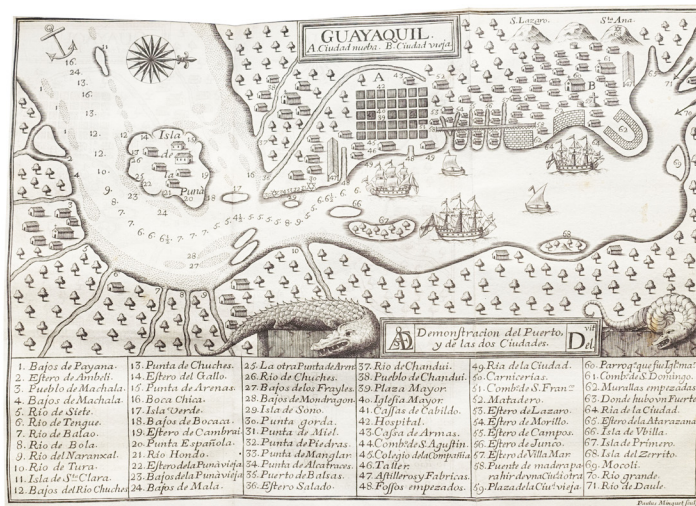 GUAYAQUIL.
A. Ciudad nueba. B. Ciudad vieja
S. Lazaro.
Sta. Ana.
A
B
Isla
de
la
Puna
Demonstracion del Puerto,
y de las dos Ciudades.
Delvit
1. Bajos de Payana.
2. Estero de Ambeli.
3. Pueblo de Machala.
4. Bajos de Machala.
5. Rio de Siete.
6. Rio de Tengue.
7. Rio de Balao.
8. Rio de Bola.
9. Rio del Naranxal.
10. Rio de Tura.
11. Isla de Sta. Clara.
12. Bajos del Rio Chuches
13. Punta de Chuches.
14. Estero del Gallo.
15. Punta de Arenas.
16. Boca Chica.
17. Isla Verde.
18. Bajos de Bocaca.
19. Estero de Cambrai
20. Punta Española.
21. Rio Hondo.
22. Estero dela Puna vieja
23. Bajos dela Puna vieja
24. Bajos de Mala.
25. La otra Punta de Aren
26. Rio de Chuches.
27. Bajos de los Frayles.
28. Bajos de Mondragon.
29. Isla de Sono.
30. Punta gorda.
31. Punta de Miel.
32. Punta de Piedras.
33. Punta de Manglar.
34. Punta de Alcatraces.
35. Puerto de Balsas.
36. Estero Salado.
37. Rio de Chandui.
38. Pueblo de Chandui.
39. Plaza Mayor.
40. Iglesia Mayor.
41. Cassas de Cabildo.
42. Hospital.
43. Casa de Armas.
44. Combto. de S. Agustin.
45. Colegio dela Compañia
46. Taller.
47. Astilleros y Fabricas.
48. Fossos empezados.
49. Ria de la Ciudad.
50. Carnicerias.
51. Combto. de S. Franco.
52. Matadero.
53. Estero de Lazaro.
54. Estero de Morillo.
55. Estero de Campos.
56. Estero de Junco.
57. Estero de Villa Mar.
58. Puente de madera pa-
ra hir de vna Ciud. a otra
59. Plaza de la Ciud. vieja.
60. Parroqa. que fue Igla. ma.
61. Combto. de S. Domingo.
62. Murallas empezadas
63. Donde hubo vn Fuerte
64. Ria de la Ciudad.
65. Estero de la Atarazana
66. Isla de Vbilla.
67. Isla de Primero.
68. Isla del Zerrito.
69. Mocoli.
70. Rio grande.
71. Rio de Daule.
Paulus Minguet sculp.